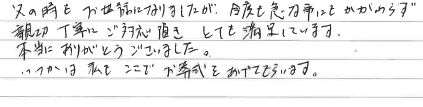 父の時もお世話になりましたが、今度も急な事にもかかわらず
親切丁寧にご対応頂きとても満足しています。
本当にありがとうございました。
いつかは私もここでお葬式をあげてもらいます。